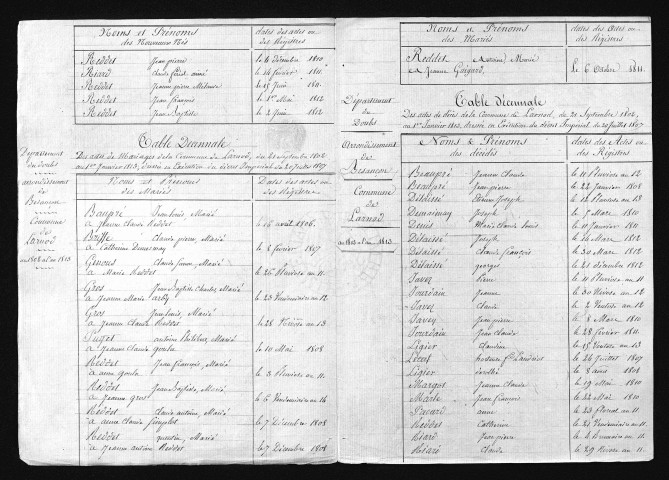 Noms et Prénoms des Nouveaux Nés
dates des actes ou des Registres
Reddet Jean pierre le 4 Décembre 1810
Riard Claude françois aimé le 14 février 1811
Reddet Jeanne pierre le 18 Juin 1811
Reddet Jean françois le 1er Mai 1812
Reddet Jean Baptiste le 2 Juin 1812
Table Décennale
Des actes de Mariages de la Commune de Larnod, du 21 septembre 1802
au 1er janvier 1813, dressée en Exécution du décret Impérial du 20 Juillet 1807
Département
du Doubs
arrondissement
de
Besancon
Commune
de
Larnod
an 1802 à l'an 1813
Noms et Prénoms des Mariés
Dates des actes ou des Registres
Baugré Jean Louis, Marié
à Jeanne Claude Reddet le 16 avril 1806.
Briffe Claude pierre, Marié
à Catherine Dumainay le 2 février 1807
Ginoux Claude Simon, Marié
à Marie Reddet le 26 Pluviose an 11.
Gros Jean Baptiste Charles, Marié
à Jeanne Marie arby le 23 Vendémiaire an 12
Gros Jean Louis, Marié
à Jeanne Claude Reddet le 28 Ventose an 13
Puget antoine Philibert, Marié
à Jeanne Claude goule le 10 Mai 1808
Reddet Jean françois, Marié
à anne goule le 3 Pluviose an 11.
Reddet Jean Baptiste, Marié
à Jeanne gros le 6 Vendémiaire an 14
Reddet Claude antoine, Marié
à anne Claude le 7 Décembre 1808
Reddet quentin, Marié
à Jeanne antoine Reddet le 7 Décembre 1808
Noms et Prénoms des Mariés
dates des Actes ou des Régistres
Reddet antoine, Marié
à Jeanne Guigard. le 6 Octobre 1811.
Table décennale
Des actes de décès de la Commune de Larnod, du 21 Septembre 1802,
au 1er Janvier 1813, dressée en Exécution du décret Impérial du 20 Juillet 1807
Département
du
Doubs
arrondissement
de
Besançon
Commune
de
Larnod
an 1802 à l'an 1813
Noms & Prénoms des décédés
dates des Actes ou des Registres
Beaugré Jeanne Claude le 11 Pluviose an 12
Beaugré Jean pierre le 22 Janvier 1808
Délassé Etienne Joseph le 12 Pluviose an 13
Dumainay Joseph le 7 Mars 1810
Denis Marie Claude Louise le 11 Janvier 1811
Délassé Joseph le 16 Mars 1812
Délassé Claude françois le 30 Mars 1812
Délassé georges le 21 décembre 1812
Favey Pierre le 11 Pluviose an 11.
Jourdain Jeanne le 30 Nivose an 12
Favey Claude le 2 Ventose an 12
Favey Pierre le 8 Mars 1810
Jourdain Jean Claude le 28 février 1811.
Ligier Claudine le 18 Ventose an 13
le 26 Juillet 1807
Ligier le 8 avril 1808
Margot Jeanne Claude le 19 Mai 1810
Marle Jean françois le 22 Mai 1810
Picard anne le 23 floréal an 11
Reddet Catherine le 21 Vendémiaire an 11.
Riard Jean pierre le 4 Brumaire an 11.
Riard Claude le 29 Nivose an 11.